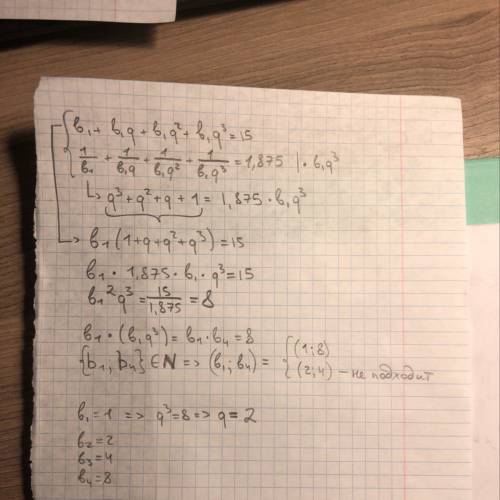 b₁ + b₁q + b₁q² + b₁q³ = 15
1/b₁ + 1/b₁q + 1/b₁q² + 1/b₁q³ = 1,875 | · b₁q³
↳ q³ + q² + q + 1 = 1,875 · b₁q³
→ b₁(1+q+q²+q³) = 15
b₁ · 1,875 · b₁ · q³ = 15
b₁²q³ = 15/1,875 = 8
b₁ · (b₁q³) = b₁ · b₄ = 8
{b₁, b₄} ∈ N => (b₁; b₄) = { (1; 8)
(2; 4) – не подходит
b₁ = 1 => q³ = 8 => q = 2
b₂ = 2
b₃ = 4
b₄ = 8